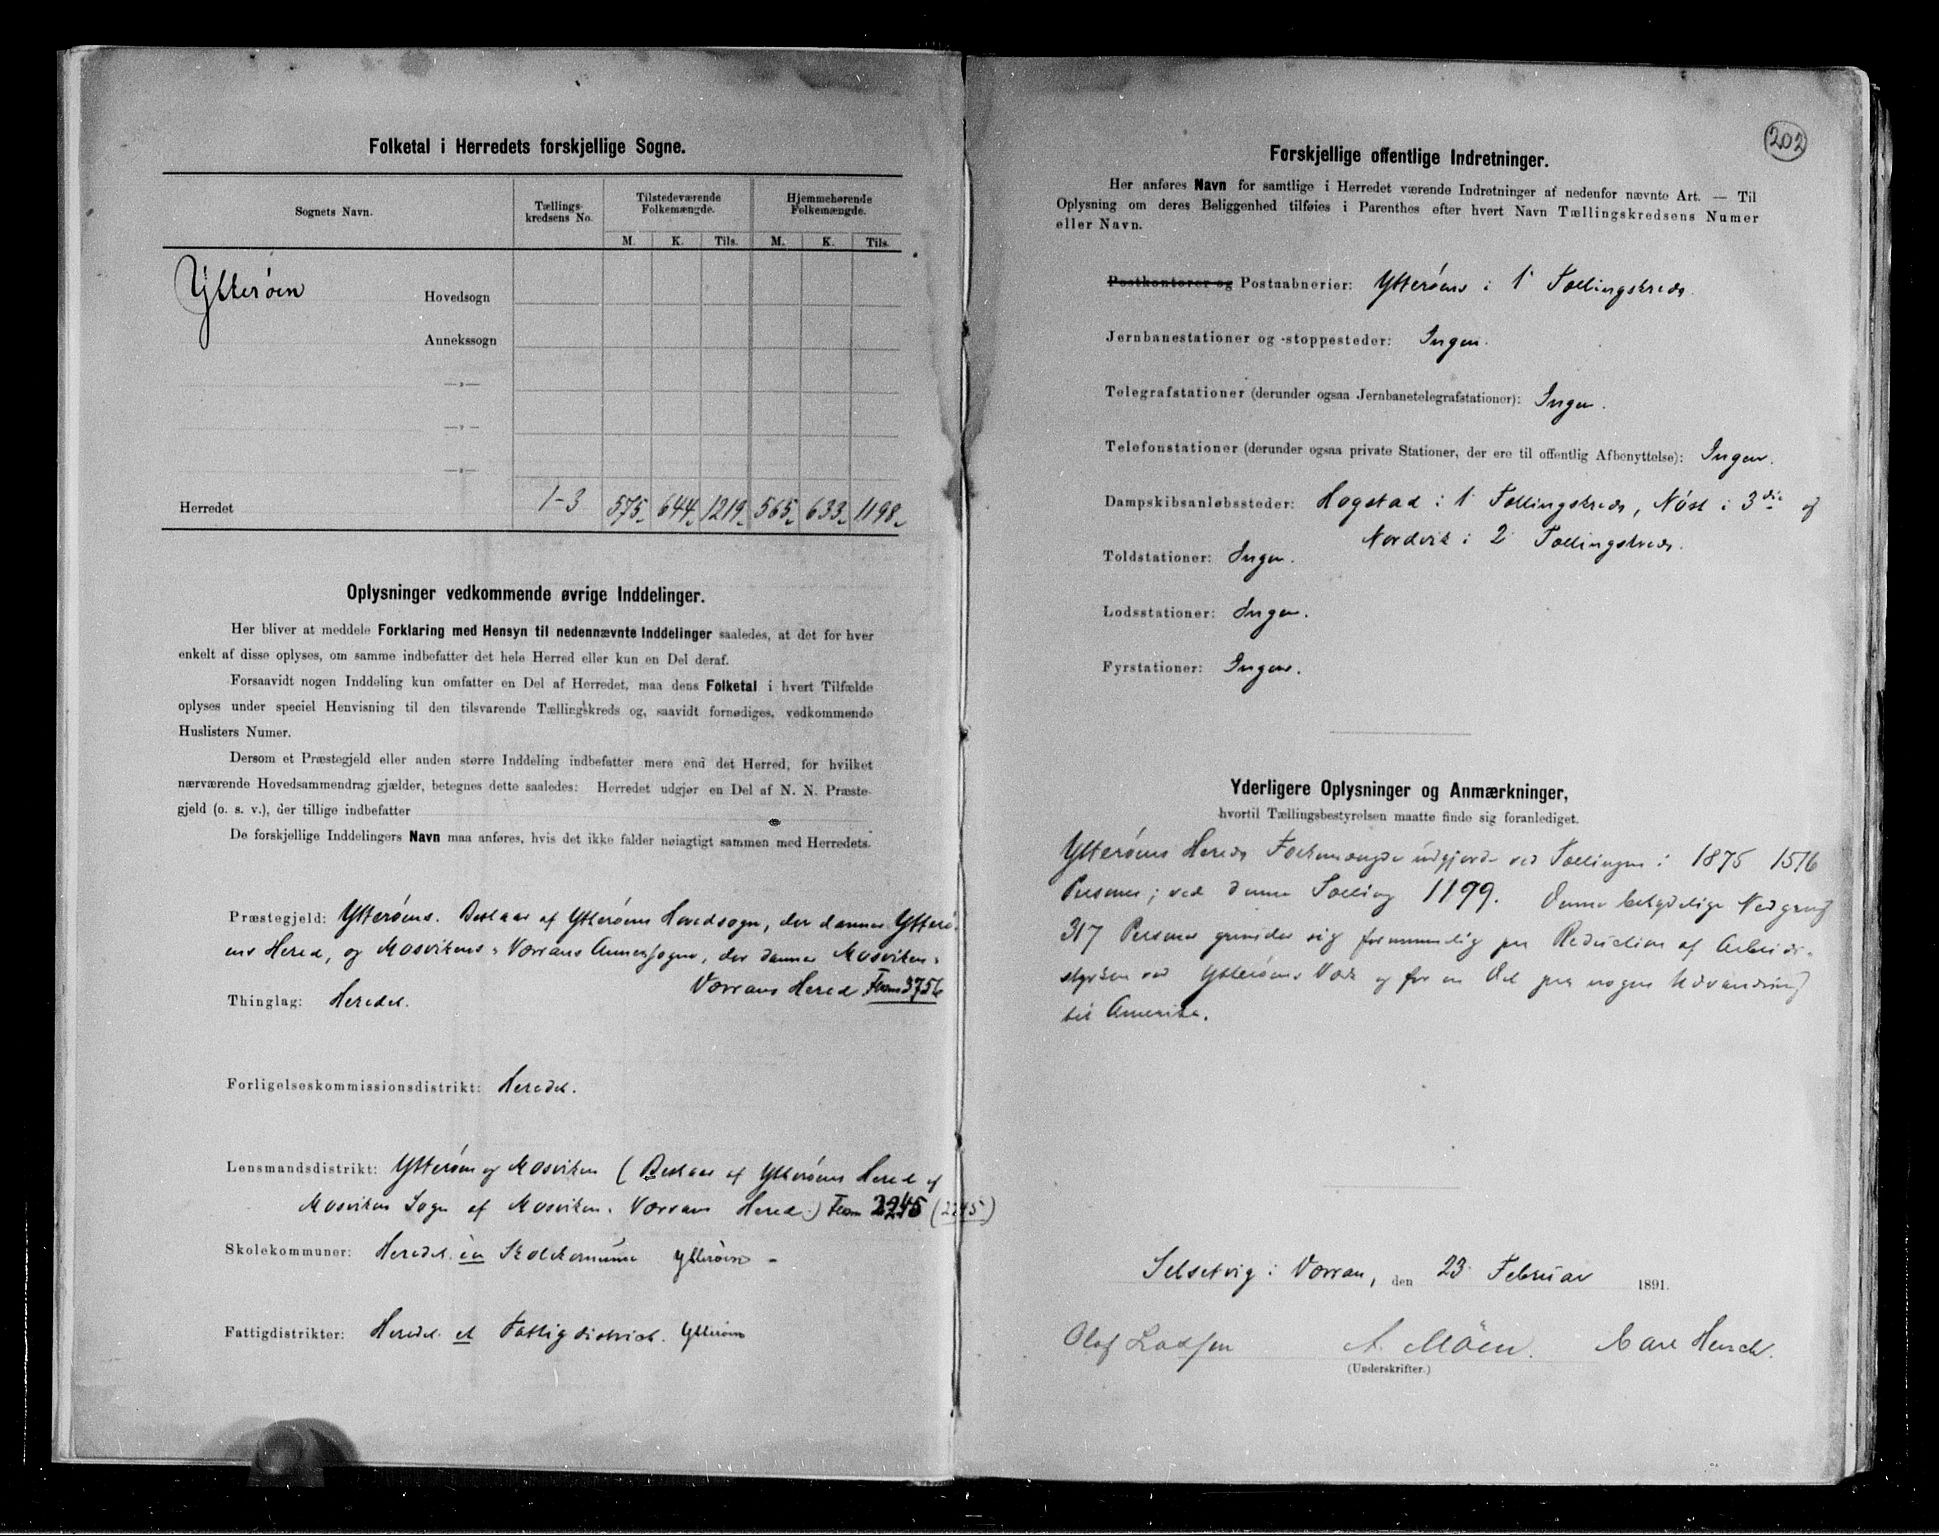 Folketal i Herredets forskjellige Sogne.
Sognets Navn. Tællingskredsens No. Tilstedeværende Folkemængde. Hjemmehørende Folkemængde.
M. K. Tils. M. K. Tils.
Ytterøen Hovedsogn
Annekssogn
—„—
—„—
—„—
Herredet 1-3 575 644 1219 565 633 1198
Oplysninger vedkommende øvrige Inddelinger.
Her bliver at meddele Forklaring med Hensyn til nedennævnte Inddelinger saaledes, at det for hver
enkelt af disse oplyses, om samme indbefatter det hele Herred eller kun en Del deraf.
Forsaavidt nogen Inddeling kun omfatter en Del af Herredet, maa dens Folketal i hvert Tilfælde
oplyses under speciel Henvisning til den tilsvarende Tællingskreds og, saavidt fornødiges, vedkommende
Huslisters Numer.
Dersom et Præstegjeld eller anden større Inddeling indbefatter mere end det Herred, for hvilket
nærværende Hovedsammendrag gjælder, betegnes dette saaledes: Herredet udgjør en Del af N. N. Præste-
gjeld (o. s. v.), der tillige indbefatter
De forskjellige Inddelingers Navn maa anføres, hvis det ikke falder nøiagtigt sammen med Herredets.
Præstegjeld: Ytterøens. Bestaar af Ytterøens Hovedsogn, der danner Ytterø-
ens Hered, og Mosvikens & Værrans Annexsogne, der danner Mosviken-
Værrans Hered 3756
Thinglag: Heredet.
Forligelseskommissionsdistrikt: Heredet.
Lensmandsdistrikt: Ytterøen og Mosviken (Bestaar af Ytterøens Hered og
Mosviken Sogn af Mosviken-Værrans Hered.) 2245 (2245)
Skolekommuner: Heredet en Skolekommune Ytterøens
Fattigdistrikter: Heredet et Fattigdistrict. Ytterøens
202
Forskjellige offentlige Indretninger.
Her anføres Navn for samtlige i Herredet værende Indretninger af nedenfor nævnte Art. — Til
Oplysning om deres Beliggenhed tilføies i Parenthes efter hvert Navn Tællingskredsens Numer
eller Navn.
Postkontorer og Postaabnerier: Ytterøens i 1 Tællingskreds.
Jernbanestationer og -stoppesteder: Ingen.
Telegrafstationer (derunder ogsaa Jernbanetelegrafstationer): Ingen.
Telefonstationer (derunder ogsaa private Stationer, der ere til offentlig Afbenyttelse): Ingen.
Dampskibsanløbssteder: Hogstad i 1 Tællingskreds, Nøst i 3die og
Nordvik i 2 Tællingskreds.
Toldstationer: Ingen.
Lodsstationer: Ingen.
Fyrstationer: Ingen.
Yderligere Oplysninger og Anmærkninger,
hvortil Tællingsbestyrelsen maatte finde sig foranlediget.
Ytterøens Hereds Folkemængde udgjorde ved Tællingen i 1875 1516
Personer; ved denne Tælling 1199. Denne betydelige Nedgang
317 Personer grunder sig fornemmelig paa Reduction af Arbeids-
styrken ved Ytterøens Værk og for en Del paa nogen Udvandring
til Amerika.
Selsetvig i Værran, den 23 Februar 1891.
Olaf Ladssen A. Möen. Carl Hersch.
(Underskrifter.)